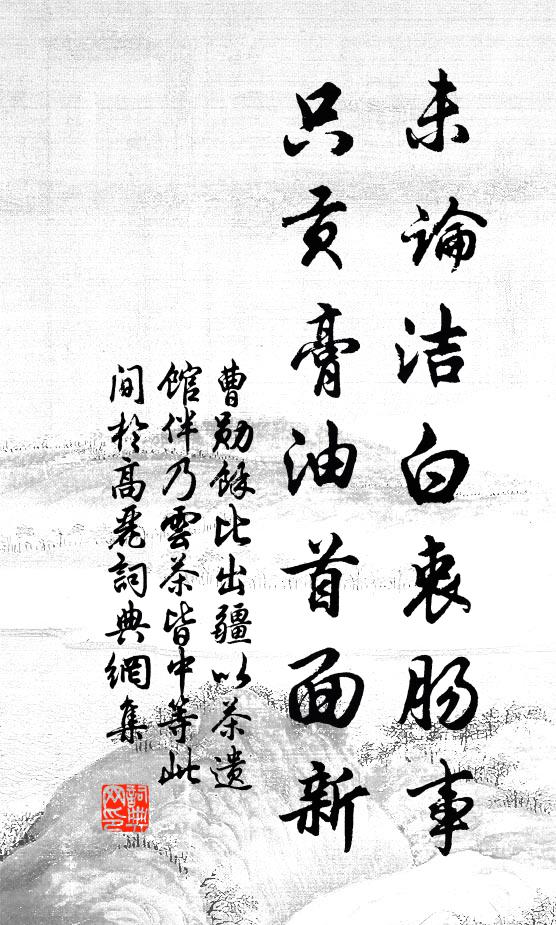 未論洁白衷肠事
只贡膏油首面新
曹勛餘比出疆以茶遗
馆伴乃雲茶皆中等此
间於高麗詞典網集